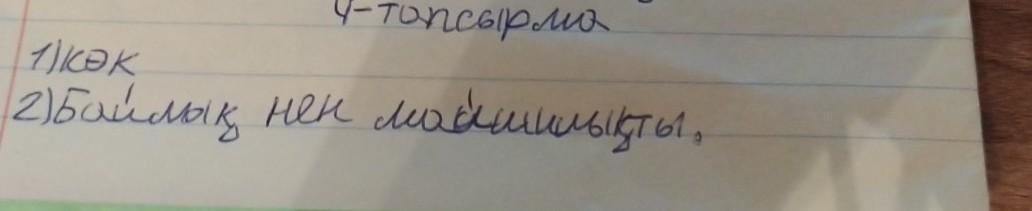 4-топсырма
1) көк
2) Байлық нен майшилықты.